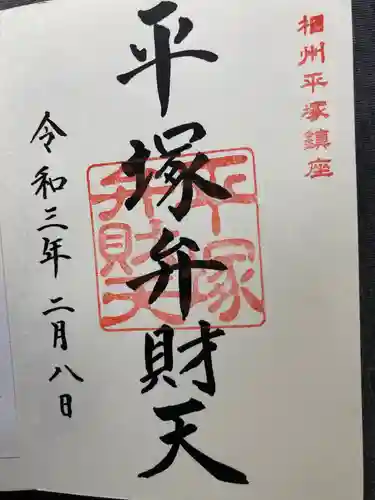 相州平塚鎮座
平塚弁財天
平塚
弁財天
令和三年二月八日